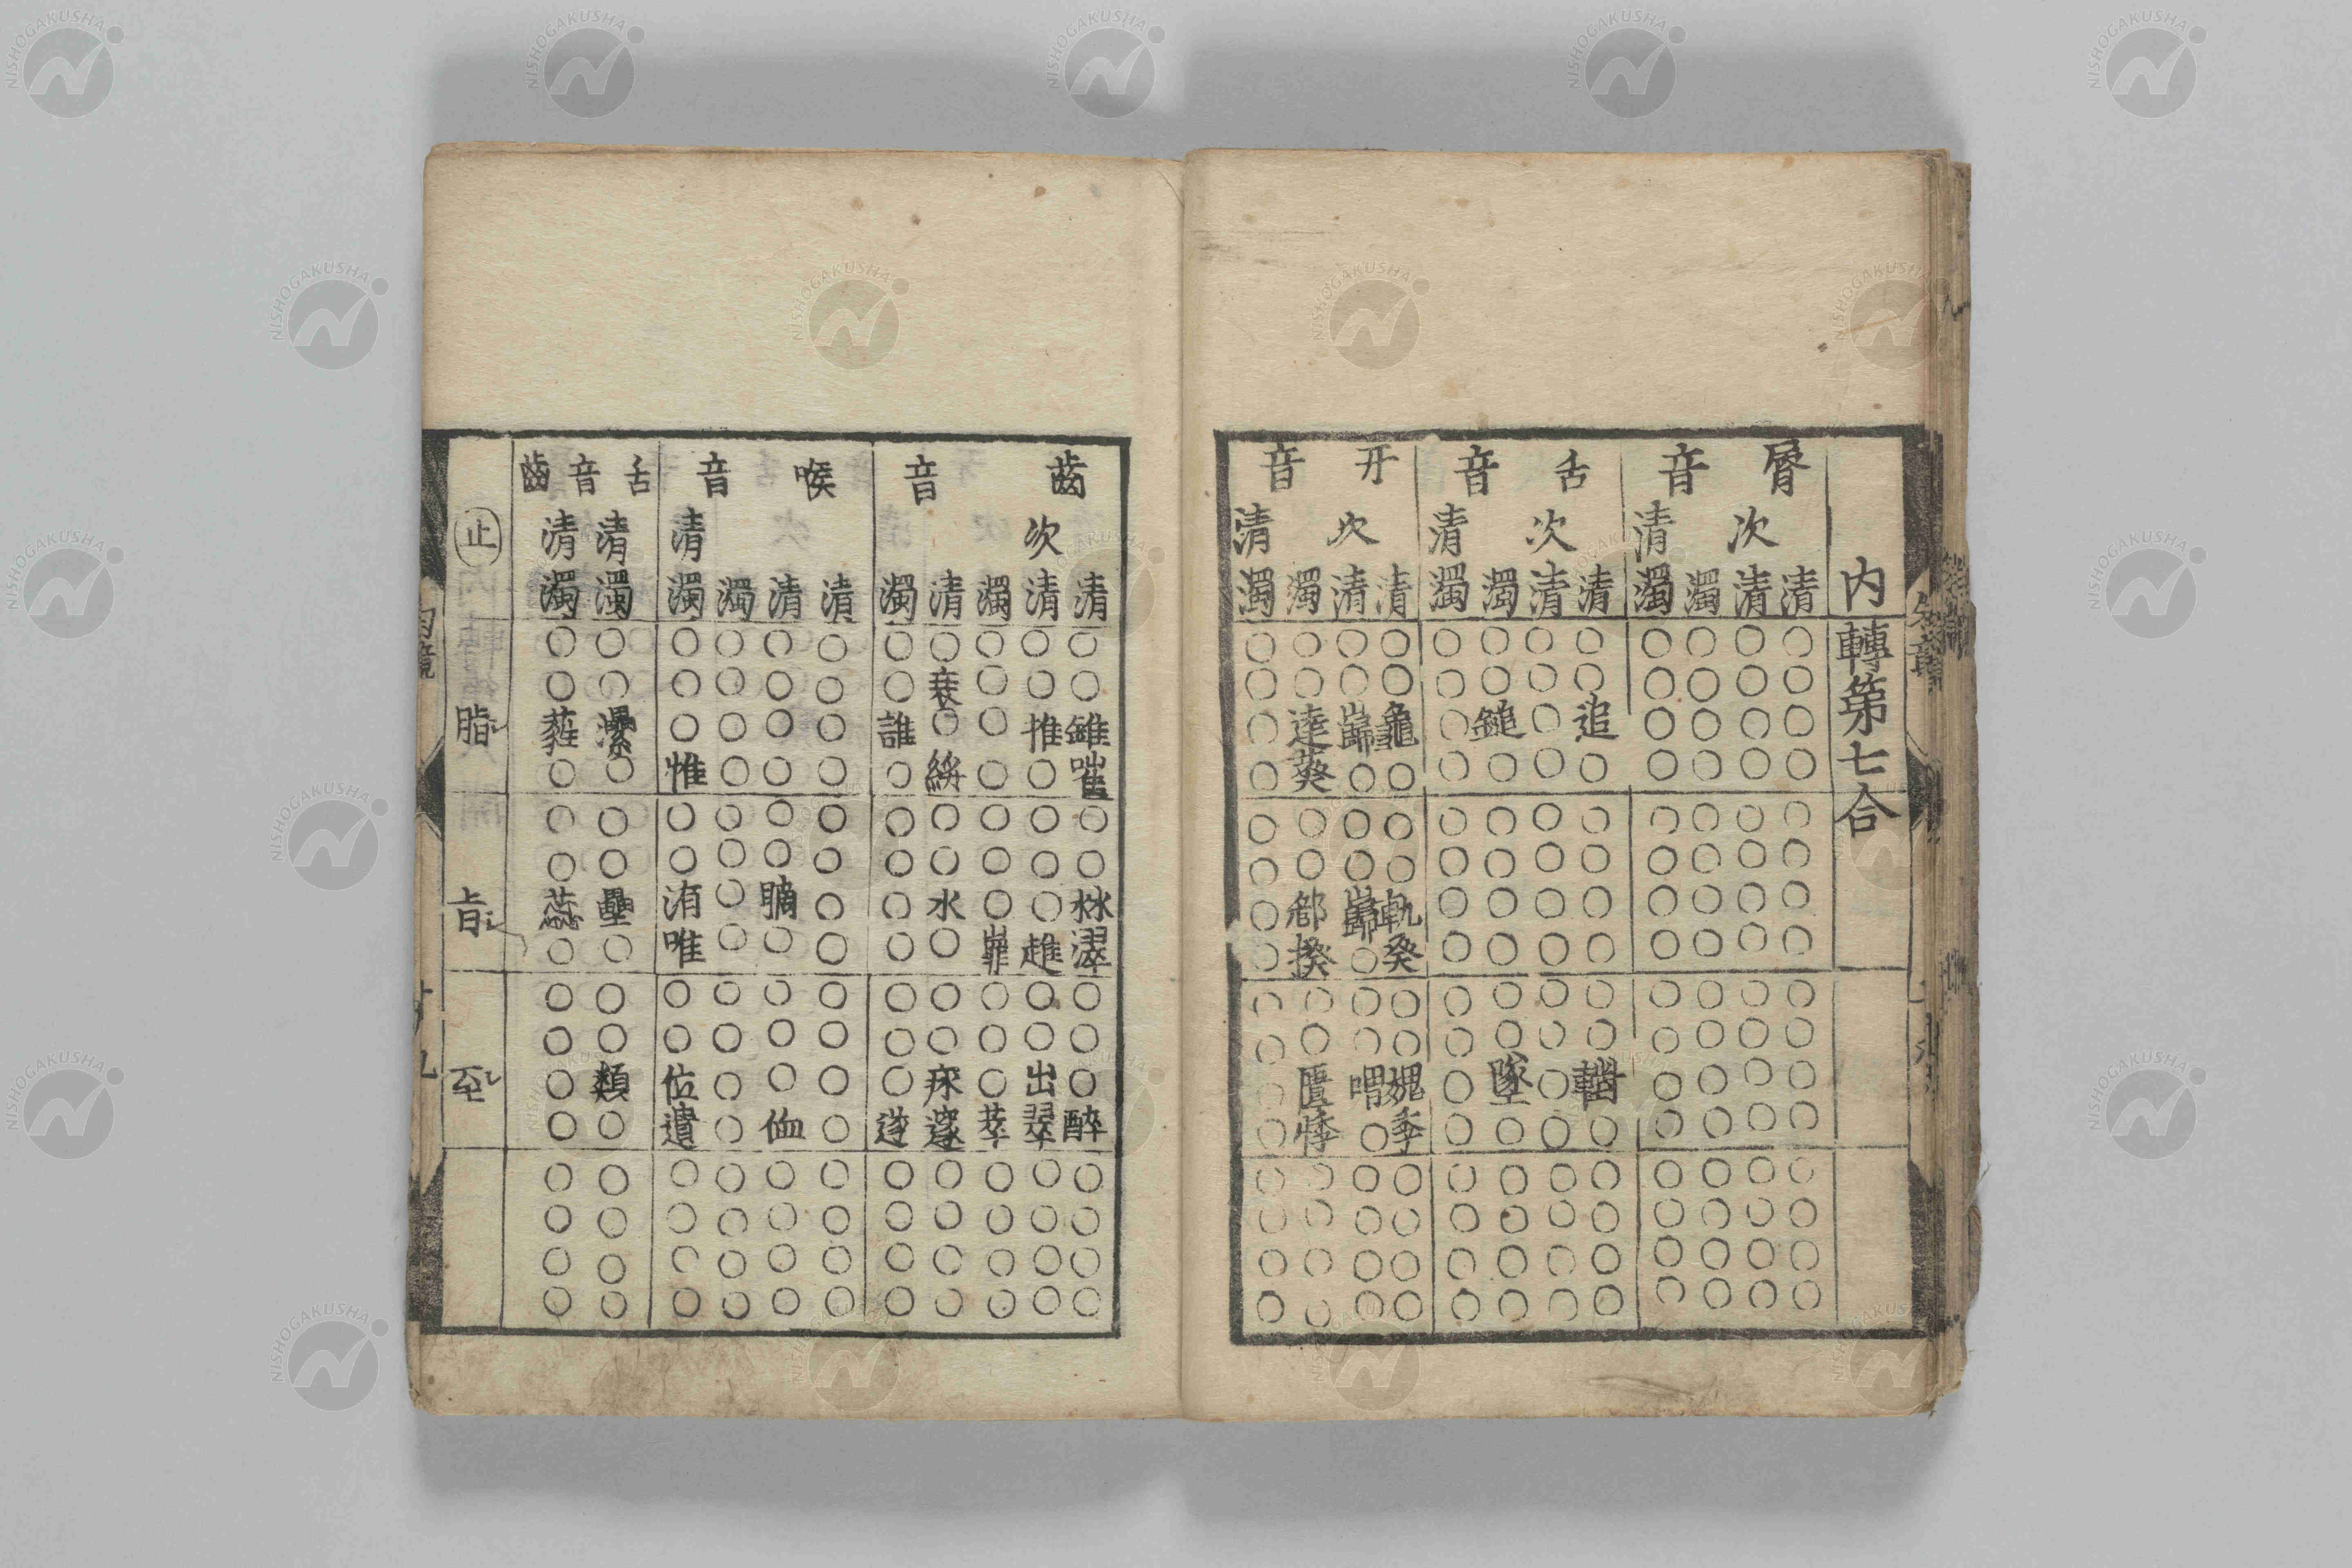 内轉第七合
脣音 舌音 牙音
清 次清 濁 清濁 清 次清 濁 清濁 清 次清 濁 清濁
○ ○ ○ ○ ○ ○ ○ ○ ○ ○ ○ ○
○ ○ ○ ○ ○ ○ ○ ○ ○ ○ ○ ○
○ ○ ○ ○ 追 ○ 鎚 ○ 龜 巋 逵 ○
○ ○ ○ ○ ○ ○ ○ ○ ○ ○ 葵 ○
○ ○ ○ ○ ○ ○ ○ ○ ○ ○ ○ ○
○ ○ ○ ○ ○ ○ ○ ○ ○ ○ ○ ○
○ ○ ○ ○ ○ ○ ○ ○ 軌 巋 ○
○ ○ ○ ○ ○ ○ ○ ○ 癸 ○ 揆 ○
○ ○ ○ ○ ○ ○ ○ ○ ○ ○ ○ ○
○ ○ ○ ○ ○ ○ ○ ○ ○ ○ ○ ○
○ ○ ○ ○ 轛 ○ 墜 ○ 媿 喟 匱 ○
○ ○ ○ ○ ○ ○ ○ ○ 季 ○ 悸 ○
○ ○ ○ ○ ○ ○ ○ ○ ○ ○ ○ ○
○ ○ ○ ○ ○ ○ ○ ○ ○ ○ ○ ○
○ ○ ○ ○ ○ ○ ○ ○ ○ ○ ○ ○
○ ○ ○ ○ ○ ○ ○ ○ ○ ○ ○ ○
齒音 喉音 舌音齒
清 次清 濁 清 濁 清 清 濁 清濁 清濁 清濁
○ ○ ○ ○ ○ ○ ○ ○ ○ ○ ○
○ ○ ○ 衰 ○ ○ ○ ○ ○ ○ ○
錐 推 ○ ○ 誰 ○ ○ ○ ○ 纍 蕤
○ ○ ○ ○ ○ ○ 惟 ○ ○
○ ○ ○ ○ ○ ○ ○ ○ ○ ○ ○
○ ○ ○ ○ ○ ○ ○ ○ ○ ○ ○
○ ○ 水 ○ ○ ○ 洧 壘
趡 ○ ○ ○ ○ ○ 唯 ○ ○
○ ○ ○ ○ ○ ○ ○ ○ ○ ○ ○
○ ○ ○ ○ ○ ○ ○ ○ ○ ○ ○
○ 出 ○ ○ ○ ○ ○ 位 類 ○
醉 翠 萃 邃 遂 ○ 侐 ○ 遺 ○ ○
○ ○ ○ ○ ○ ○ ○ ○ ○ ○ ○
○ ○ ○ ○ ○ ○ ○ ○ ○ ○ ○
○ ○ ○ ○ ○ ○ ○ ○ ○ ○ ○
○ ○ ○ ○ ○ ○ ○ ○ ○ ○ ○
止
脂
旨
至
NISHOGAKUSHA